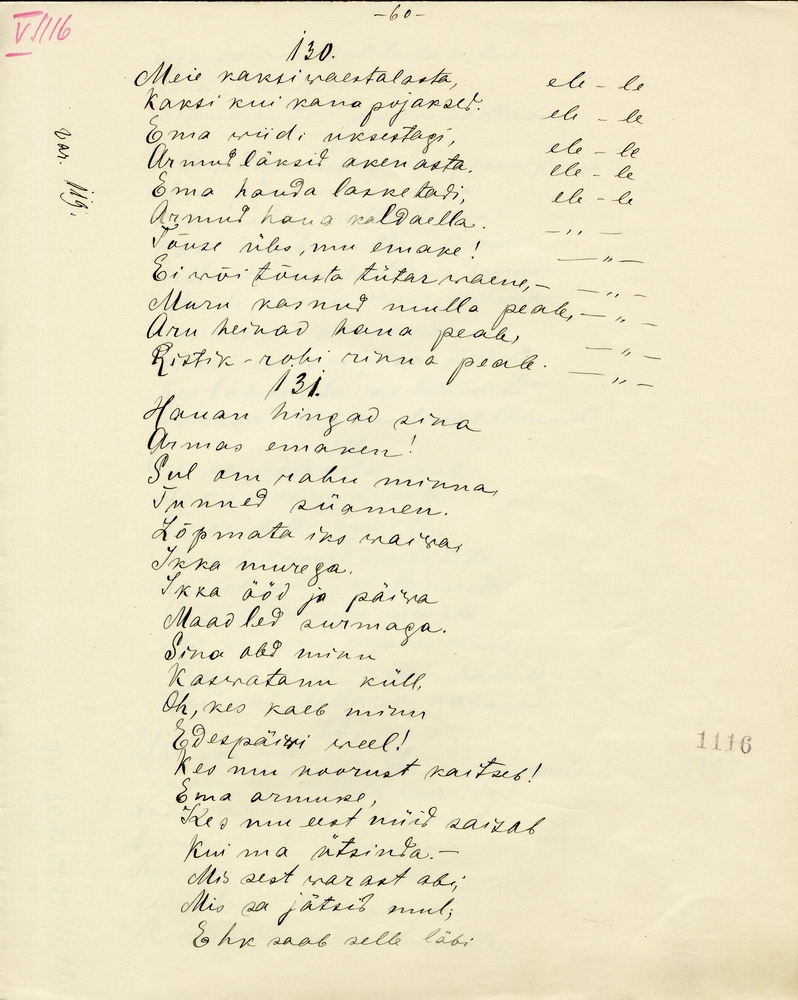 -60-
V 1116
130.
Meie kaksi waestalasta, ele - le
Kaksi kui kana pojaksed. ele - le
Ema wiidi uksestagi, ele - le
Armud läksid akenasta. ele - le
Ema hauda lasketadi, ele - le
Armud haua kaldaella. - „ -
Tõuse üles, mu emake! - „ -
Ei wõi tõusta tütar waene, - „ -
Muru kasnud mulla peale, - „ -
Aru heinad haua peale, - „ -
Ristik-rohi rinna peale. - „ -
var. 119.
131.
Hauan hingad sina
Armas emaken!
Sul om rahu minna,
Tunned süamen.
Lõpmata iks waiwa,
Ikka murega.
Ikka ööd ja päiwa
Maadled surmaga.
Sina oled minu
Kaswatanu küll,
Oh, kes kaeb minu
Edespäiwi weel!
Kes mu noorust kaitseb!
Ema armuke,
Kes mu eest nüid saisab
Kui ma ütsinda. -
Mis sest warast abi,
Mis sa jätsid mul;
Ehk saab selle läbi
1116